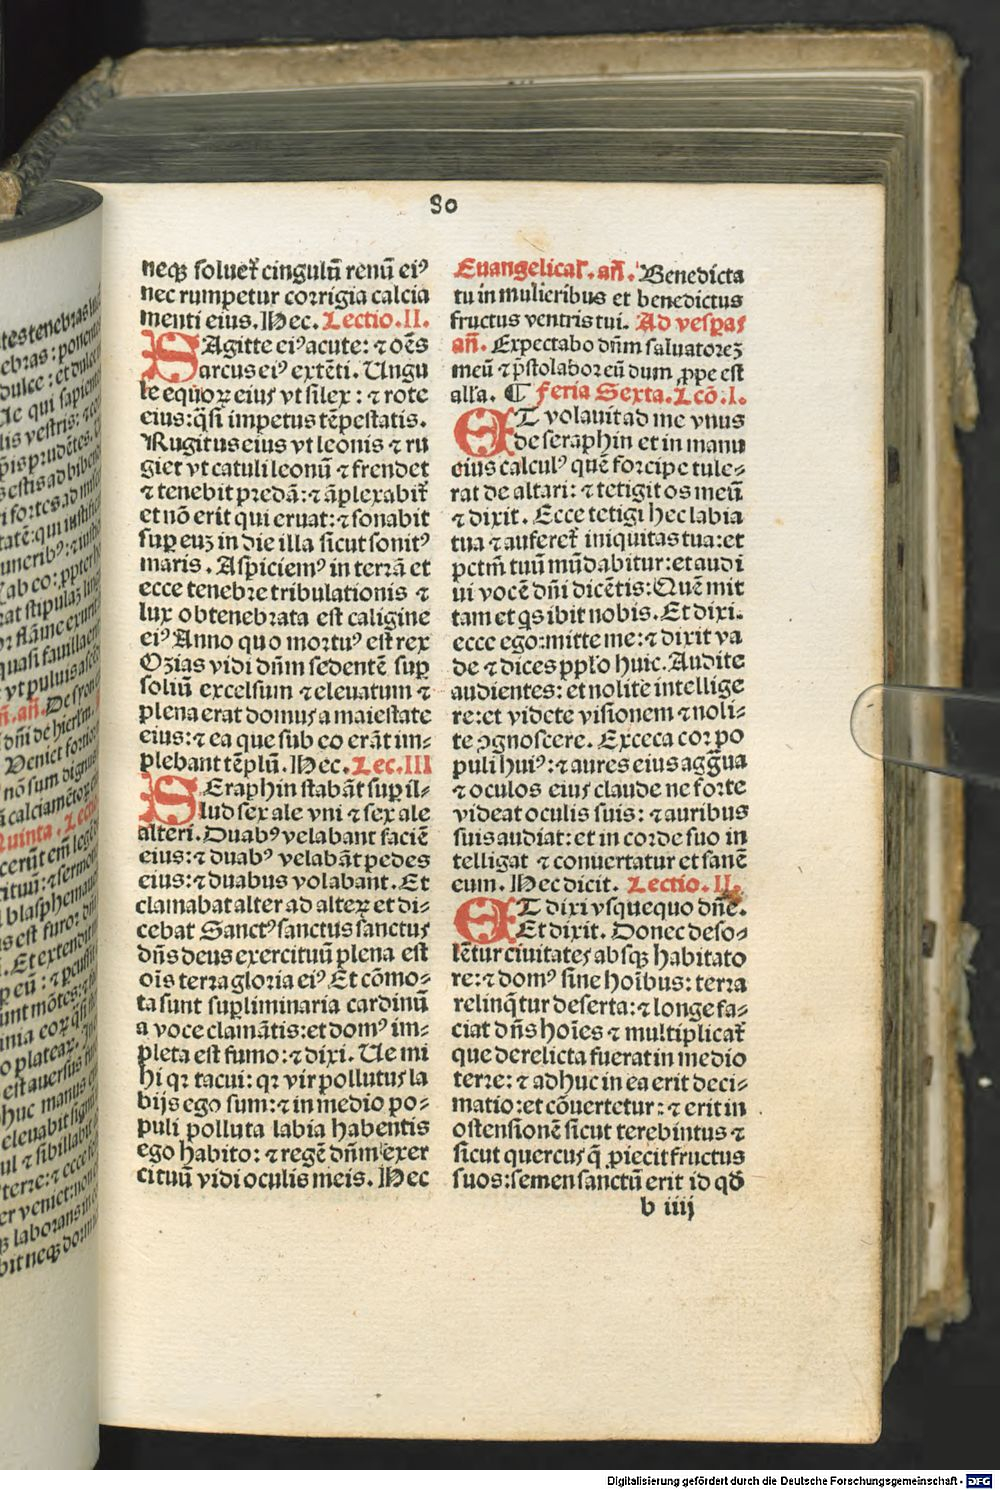 80
neqꝫ soluet᷑ cingulū renū eiꝰ
nec rumpetur corrigia calcia
menti eius. Hec. Lectio. II.
SAgitte eiꝰ acute: ⁊ oēs
arcus eiꝰ extēti. Ungu
le equoꝝ eius vt silex: ⁊ rote
eius: q̄si impetus tēpestatis.
Rugitus eius vt leonis ⁊ ru
giet vt catuli leonū ⁊ frendet
⁊ tenebit predā: ⁊ āplexabit᷑
et nō erit qui eruat: ⁊ sonabit
suꝑ euꝫ in die illa sicut sonitꝰ
maris. Aspiciemꝰ in terrā et
ecce tenebre tribulationis ⁊
lux obtenebrata est caligine
eiꝰ Anno quo mortuꝰ est rex
Ozias vidi dn̄m sedentē suꝑ
soliū excelsum ⁊ eleuatum ⁊
plena erat domus a maiestate
eius: ⁊ ea que sub eo erāt im⸗
plebant tēplū. Hec. Lec. III
SEraphin stabāt suꝑ il⸗
lud sex ale vni ⁊ sex ale
alteri. Duabꝰ velabant faciē
eius: ⁊ duabꝰ velabāt pedes
eius: ⁊ duabus volabant. Et
clamabat alter ad alteꝝ et di⸗
cebat Sanctꝰ sanctus sanctus
dn̄s deus exercituū plena est
oīs terra gloria eiꝰ Et cōmo⸗
ta sunt suꝑliminaria cardinū
a voce clamātis: et domꝰ im⸗
pleta est fumo: ⁊ dixi. Ue mi
hi qꝛ tacui: qꝛ vir pollutus la
bijs ego sum: ⁊ in medio po⸗
puli polluta labia habentis
ego habito: ⁊ regē dn̄m exer
cituū vidi oculis meis. Hec
Euangelicaꝭ. an̄. Benedicta
tu in mulieribus et benedictus
fructus ventris tui. Ad vesꝑas
an̄. Expectabo dn̄m saluatoreꝫ
meū ⁊ p̄stolabor eū dum ꝓpe est
alľa. ¶ feria Sexta. Lcō. I.
ET volauit ad me vnus
de seraphin et in manu
eius calculꝰ quē forcipe tule⸗
rat de altari: ⁊ tetigit os meū
⁊ dixit. Ecce tetigi hec labia
tua ⁊ auferet᷑ iniquitas tua: et
pctm̄ tuū mūdabitur: et audi
ui vocē dn̄i dicētis: Quē mit
tam et qͥs ibit nobis. Et dixi.
ecce ego: mitte me: ⁊ dixit va
de ⁊ dices ppľo huic. Audite
audientes: et nolite intellige
re: et videte visionem ⁊ noli⸗
te ꝯgnoscere. Exceca cor po
puli huiꝰ: ⁊ aures eius aggͣua
⁊ oculos eius claude ne forte
videat oculis suis: ⁊ auribus
suis audiat: et in corde suo in
telligat ⁊ conuertatur et sanē
eum. Hec dicit. Lectio. II.
ET dixi vsquequo dn̄e.
Et dixit. Donec deso⸗
lētur ciuitates absqꝫ habitato
re: ⁊ domꝰ sine hoībus: terra
relinq̄tur deserta: ⁊ longe fa⸗
ciat dn̄s hoīes ⁊ multiplicat᷑
que derelicta fuerat in medio
terre: ⁊ adhuc in ea erit deci⸗
matio: et cōuertetur: ⁊ erit in
ostensionē sicut terebintus ⁊
sicut quercus q̄ ꝓiecit fructus
suos: semen sanctū erit id qd̄
b iiij
Digitalisierung gefördert durch die Deutsche Forschungsgemeinschaft - DFG